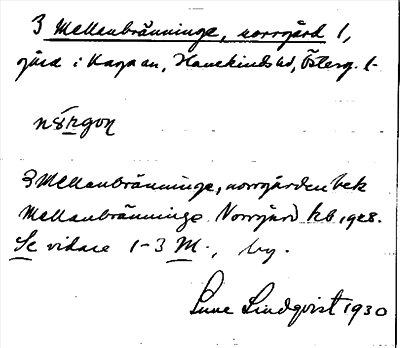 3 Mellenbränninge, norrgård 1,
gård i Kaga sn, Hanekinds hd, Österg. l.
3 Mellenbränninge, norrgården bek
Mellenbränninge Norrgård kb 1928.
Se vidare 1-3 M., by.
Sune Lindqvist 1930